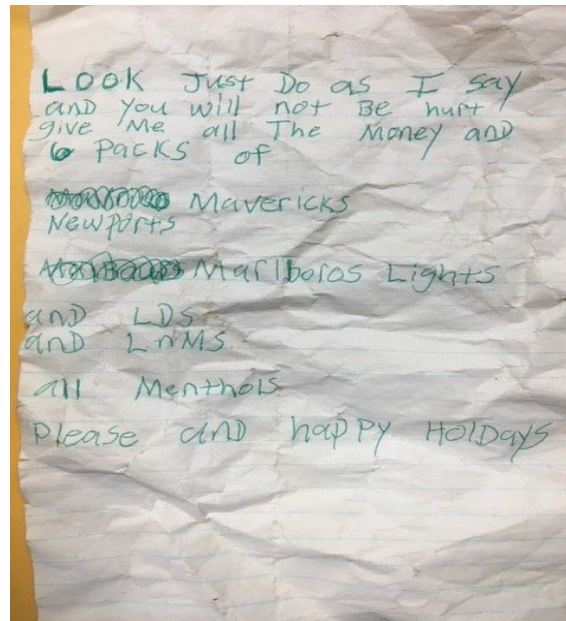 LOOK Just Do as I say
and you will not Be hurt
give Me all The Money and
6 Packs of
Mavericks
Newports
Marlboros Lights
and LDs
and LnMs
all Menthols
Please and happy HolDays